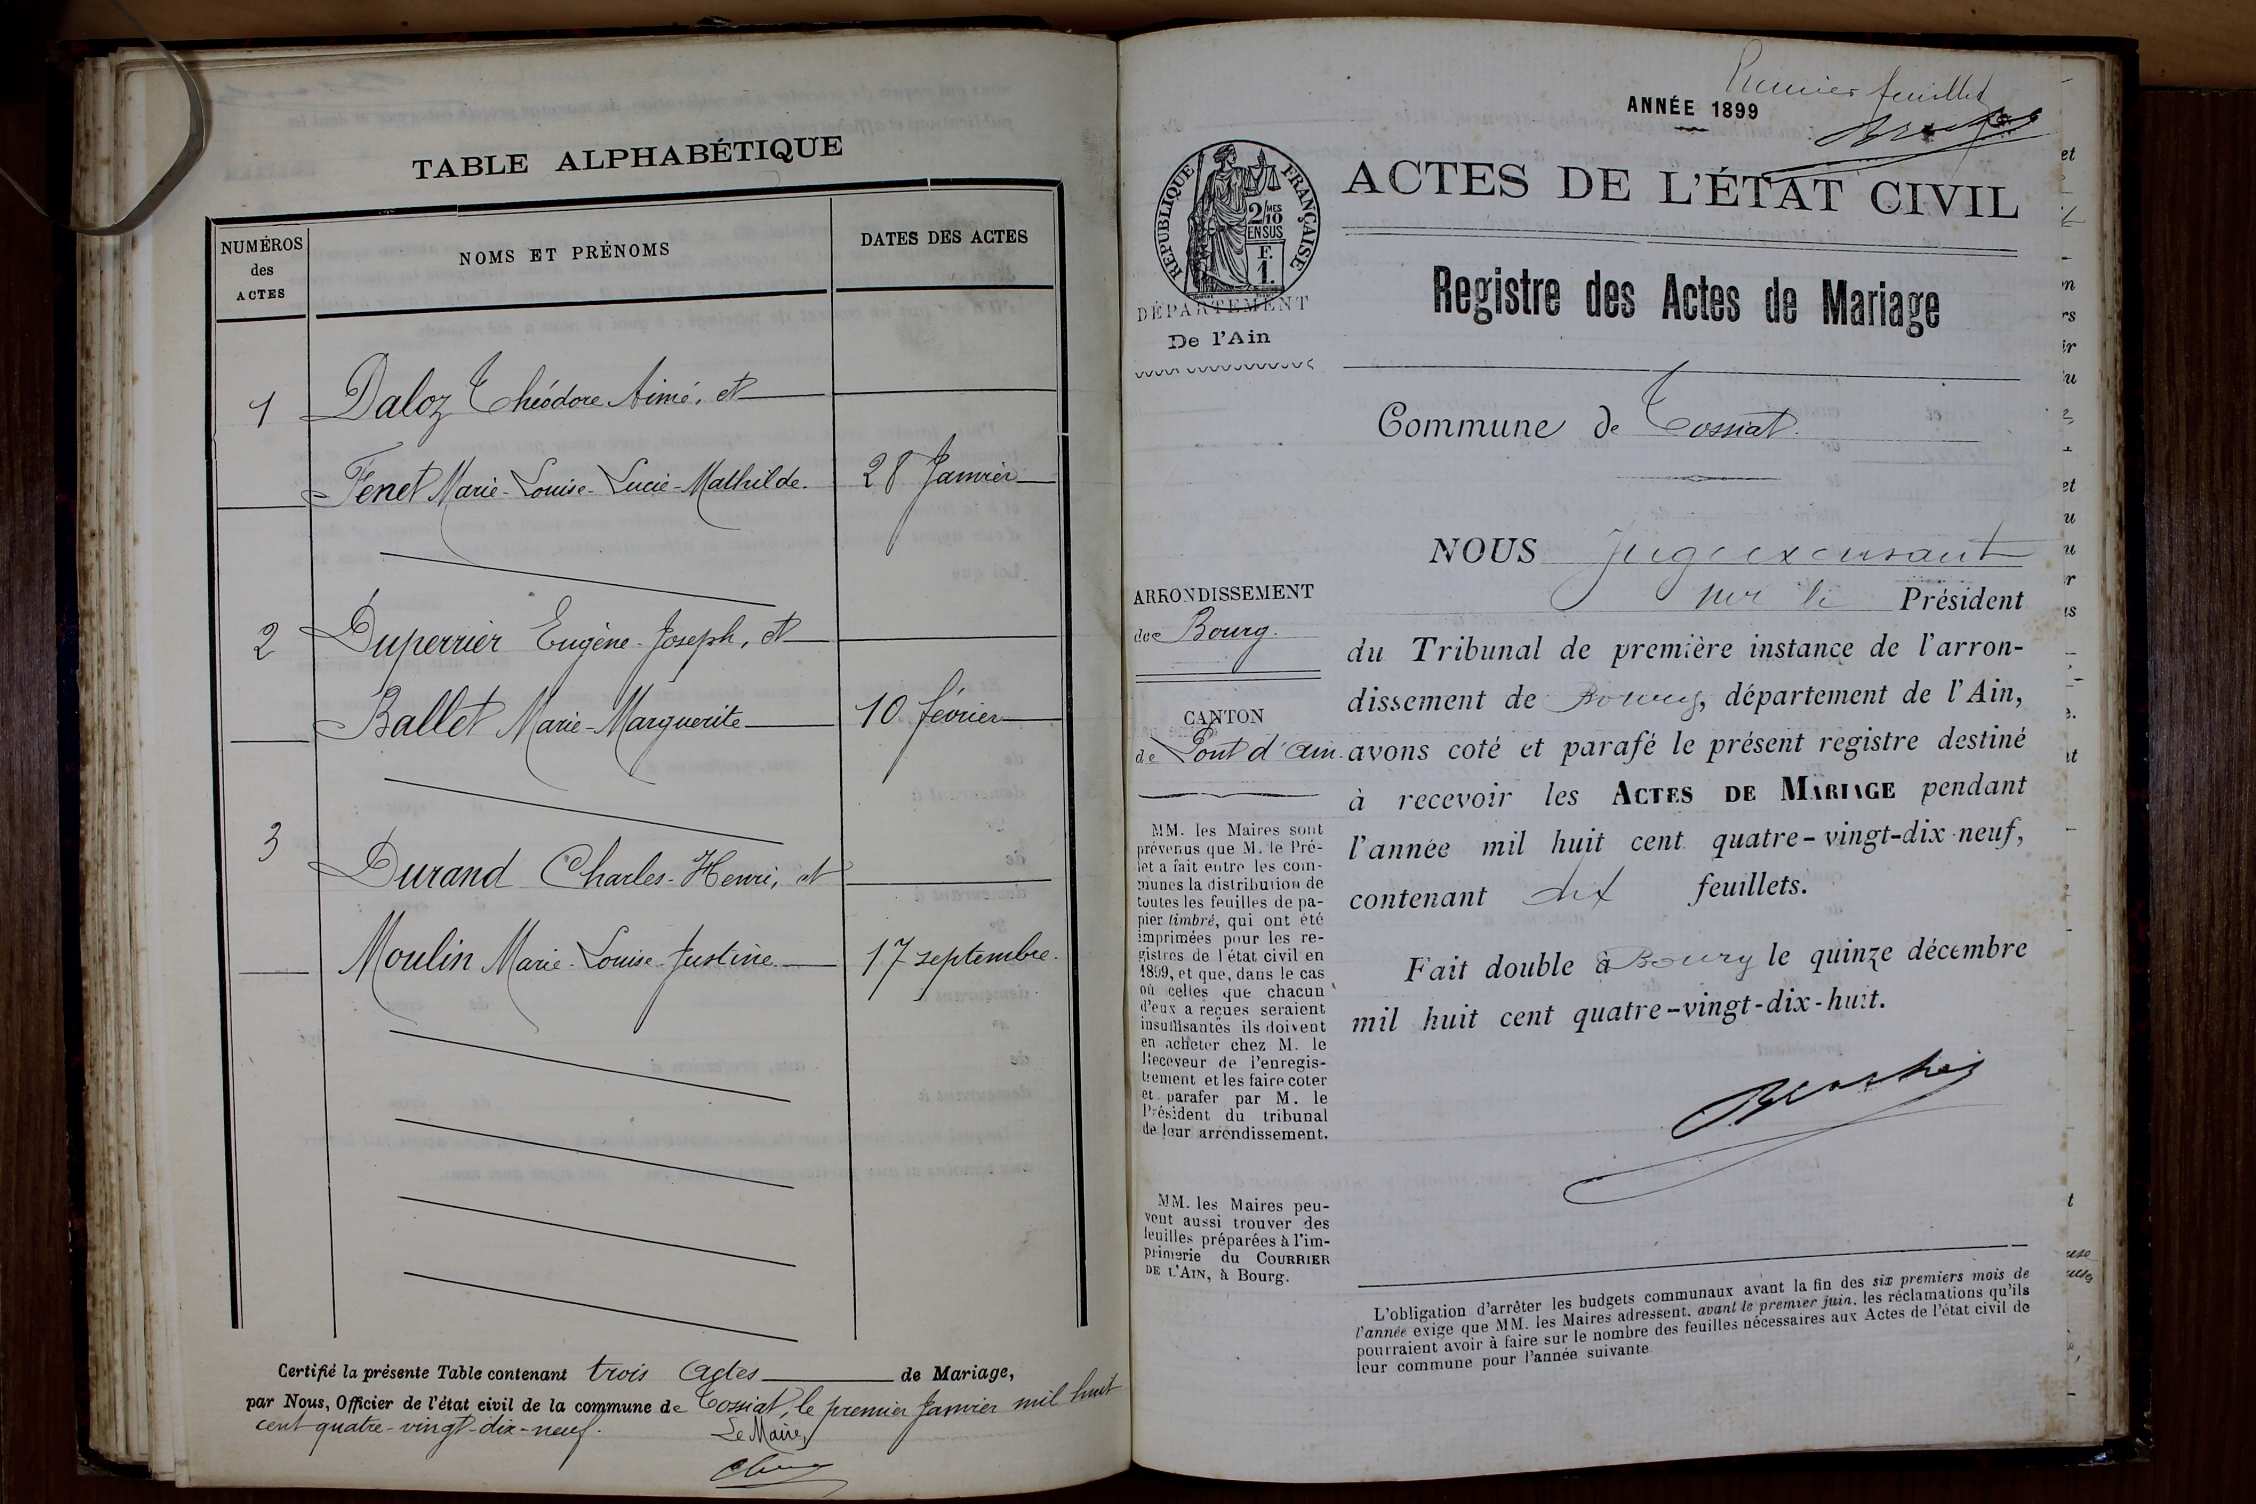 TABLE ALPHABÉTIQUE
NUMÉROS
des
ACTES
NOMS ET PRÉNOMS
DATES DES ACTES
1
Daloz Théodore Aimé, et
Fenet Marie-Louise-Lucie-Mathilde.
28 Janvier
2
Duperrier Eugène-Joseph, et
Ballet Marie-Marguerite
10 février
3
Durand Charles-Henri, et
Moulin Marie-Louise-Justine
17 septembre.
Certifié la présente Table contenant trois Actes de Mariage,
par Nous, Officier de l'état civil de la commune de Tossiat, le premier Janvier mil huit
cent quatre-vingt-dix-neuf.
Le Maire,
Premier feuillet
ANNÉE 1899
RÉPUBLIQUE FRANÇAISE
2/10 MES
EN SUS
F.
1.
DÉPARTEMENT
De l'Ain
ACTES DE L'ÉTAT CIVIL
Registre des Actes de Mariage
Commune de Tossiat.
ARRONDISSEMENT
de Bourg.
CANTON
de Pont d'Ain.
MM. les Maires sont
prévenus que M. le Pré-
fet a fait entre les com-
munes la distribution de
toutes les feuilles de pa-
pier timbré, qui ont été
imprimées pour les re-
gistres de l'état civil en
1899, et que, dans le cas
où celles que chacun
d'eux a reçues seraient
insuffisantes ils doivent
en acheter chez M. le
Receveur de l'enregis-
trement et les faire coter
et parafer par M. le
Président du tribunal
de leur arrondissement.
MM. les Maires peu-
vent aussi trouver des
feuilles préparées à l'im-
primerie du COURRIER
DE L'AIN, à Bourg.
NOUS Juge
Président
du Tribunal de première instance de l'arron-
dissement de Bourg, département de l'Ain,
avons coté et parafé le présent registre destiné
à recevoir les ACTES DE MARIAGE pendant
l'année mil huit cent quatre-vingt-dix-neuf,
contenant dix feuillets.
Fait double à Bourg le quinze décembre
mil huit cent quatre-vingt-dix-huit.
L'obligation d'arrêter les budgets communaux avant la fin des six premiers mois de
l'année exige que MM. les Maires adressent, avant le premier juin, les réclamations qu'ils
pourraient avoir à faire sur le nombre des feuilles nécessaires aux Actes de l'état civil de
leur commune pour l'année suivante